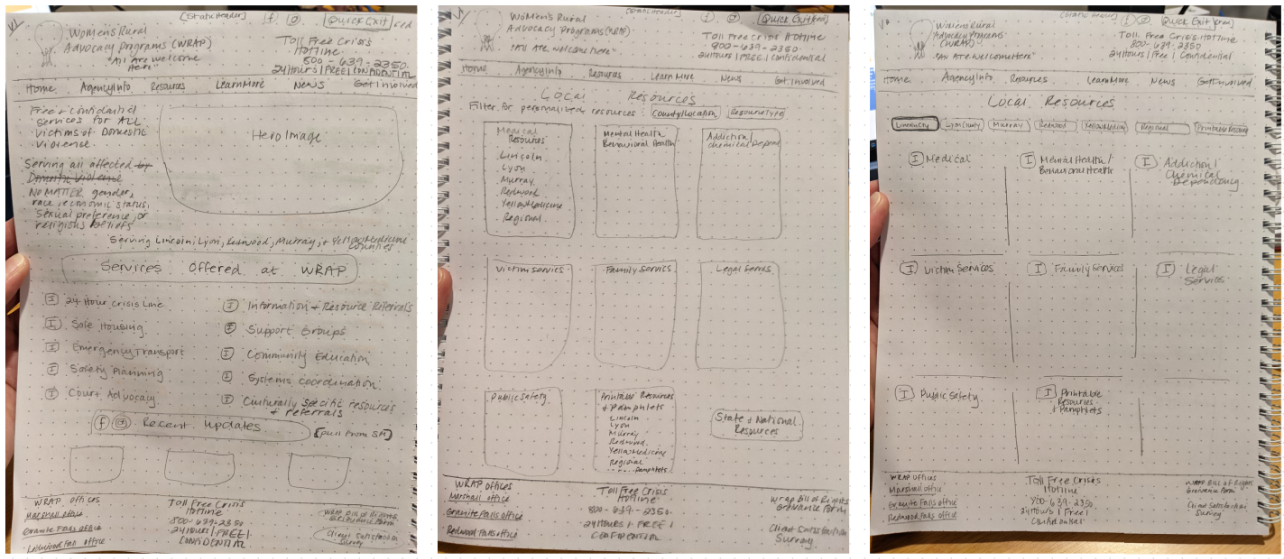 [Static Header] f @ Quick Exit red
Women's Rural
Advocacy Programs (WRAP)
"All Are welcome
Here"
Toll Free Crisis
Hotline
800-639-2350
24 Hours | FREE | CONFIDENTIAL
Home Agency Info Resources Learn More News Get Involved
Free + Confidential
Services for ALL
Victims of Domestic
Violence
Serving all affected by
Domestic Violence
NO MATTER gender,
race, economic status,
sexual preference, or
religious beliefs
Hero Image
Serving Lincoln, Lyon, Redwood, Murray, + Yellow Medicine
Counties
Services Offered at WRAP
I 24 Hour Crisis Line
I Safe Housing
I Emergency Transport
I Safety Planning
I Court Advocacy
I Information + Resource Referrals
I Support Groups
I Community Education
I Systems coordination
I Culturally Specific resources
+ referrals
f @ Recent Updates
[pull from SM]
WRAP OFFICES
Marshall office
Granite Falls office
Redwood Falls office
Toll Free Crisis
Hotline
800-639-2350
24 Hours | FREE |
CONFIDENTIAL
WRAP Bill of Rights
Grievance Form
Client Satisfaction
Survey
[Static Header] f @ Quick Exit Red
Women's Rural
Advocacy Programs (WRAP)
"All Are welcome here"
Toll Free Crisis Hotline
800-639-2350
24 Hours | FREE | Confidential
Home Agency Info Resources Learn More News Get Involved
Local Resources
Filter for personalized resources: County/Location Resource Type
Medical
Resources
Lincoln
Lyon
Murray
Redwood
Yellow Medicine
Regional
Mental Health/
Behavioral Health
Addiction/
Chemical Depend
Victim Services
Family Services
Legal Servies
Public Safety
Printable Resources
+ Pamphlets
Lincoln
Lyon
Murray
Redwood
Yellow Medicine
Regional
Pamphlets
State + National
Resources
WRAP OFFICES
Marshall office
Granite Falls office
Redwood Falls office
Toll Free Crisis
Hotline
800-639-2350
24 Hours | FREE |
CONFIDENTIAL
Wrap Bill of Rights
Grievance Form
Client Satisfaction
Survey
[Static Header] f @ Quick Exit (red)
Womens Rural
Advocacy Programs
(WRAP)
"All Are welcome Here"
Toll Free Crisis Hotline
800-639-2350
24 Hours | Free | Confidential
Home Agency Info Resources Learn More News Get Involved
Local Resources
Lincoln Cty Lyon County Murray Redwood Yellow Medicine Regional Printable Resources
I Medical
I Mental Health/
Behavioral Health
I Addiction/
Chemical
Dependency
I Victim Services
I Family Services
I Legal
Services
I Public Safety
I Printable
Resources
+ Pamphlets
WRAP OFFICES
Marshall office
Granite Falls office
Redwood Falls office
Toll Free Crisis
Hotline
800-639-2350
24 Hours | Free |
Confidential
WRAP Bill of Rights
Grievance Form
Client Satisfaction
Survey